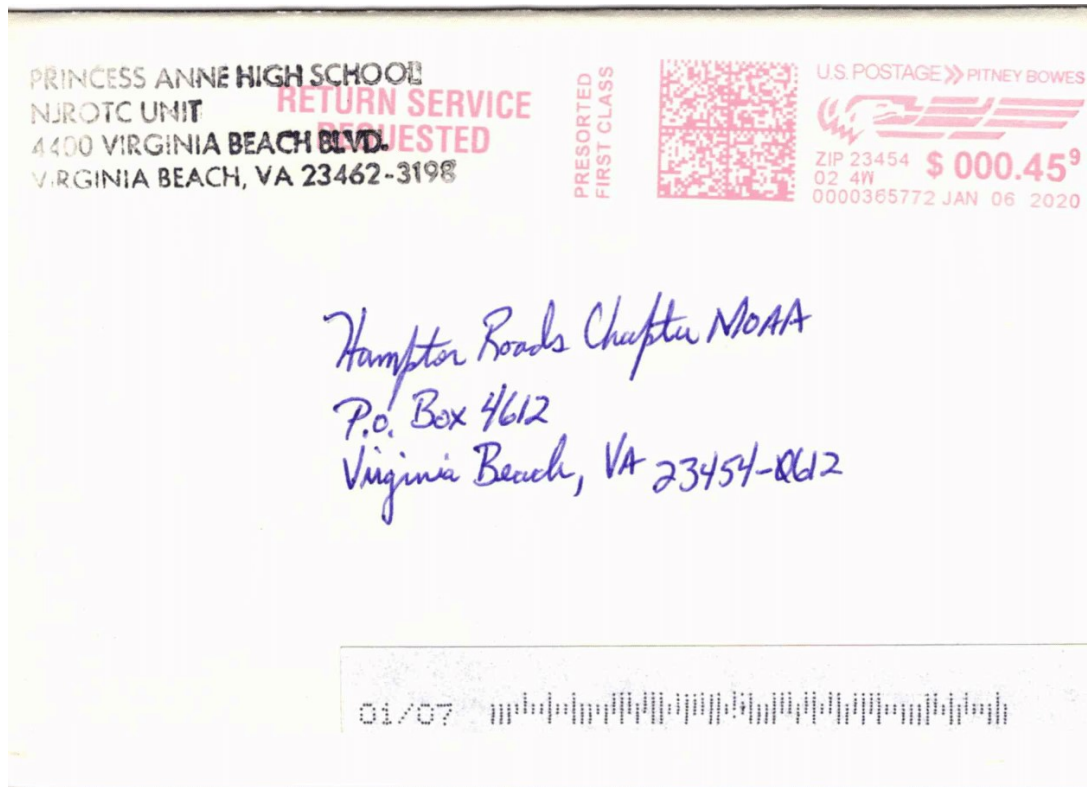 PRINCESS ANNE HIGH SCHOOL
NJROTC UNIT
4400 VIRGINIA BEACH BLVD.
VIRGINIA BEACH, VA 23462-3198
RETURN SERVICE
REQUESTED
PRESORTED
FIRST CLASS
U.S. POSTAGE PITNEY BOWES
ZIP 23454 $ 000.45⁹
02 4W
0000365772 JAN 06 2020
Hampton Roads Chapter MOAA
P.O. Box 4612
Virginia Beach, VA 23454-0612
01/07